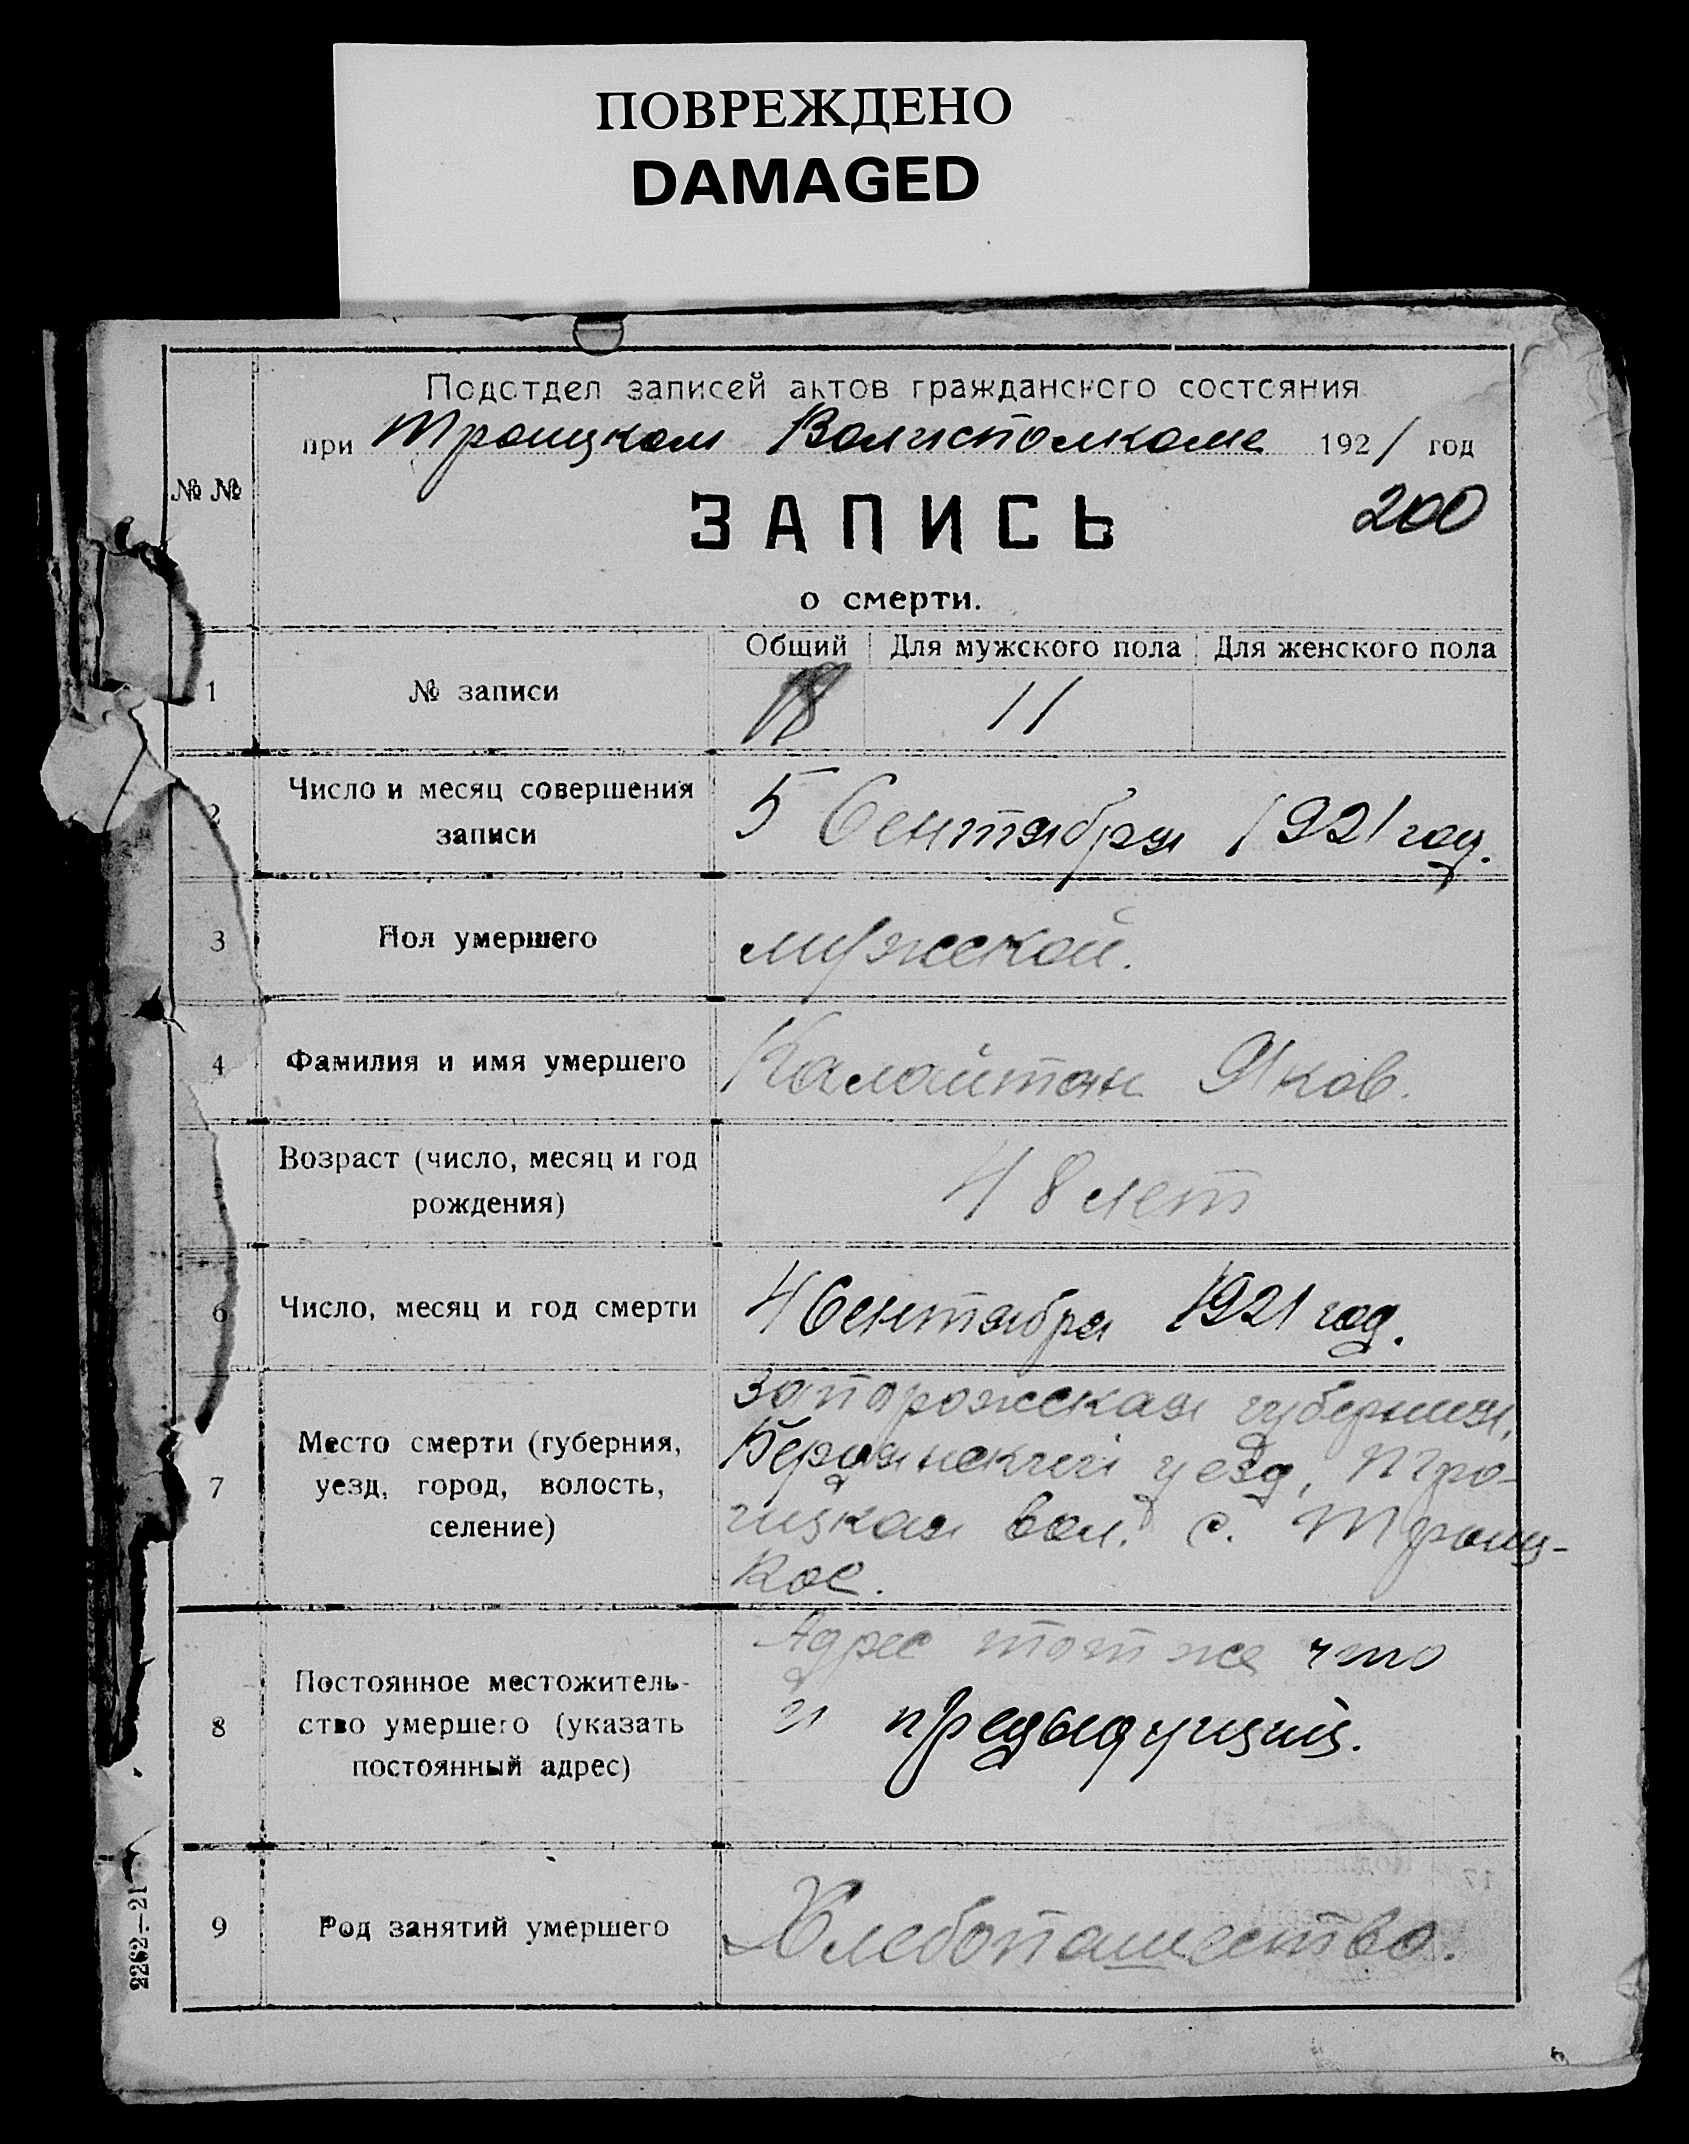 ПОВРЕЖДЕНО
DAMAGED
Подотдел записей актов гражданского состояния
при Троицком Волисполкоме 1921 год
№ №
200
ЗАПИСЬ
о смерти.
Общий Для мужского пола Для женского пола
1 № записи 18 11
2 Число и месяц совершения
записи
5 Сентября 1921 год.
3 Пол умершего мужской.
4 Фамилия и имя умершего Калайтан Яков.
Возраст (число, месяц и год
рождения)
48 лет
6 Число, месяц и год смерти 4 Сентября 1921 год.
7 Место смерти (губерния,
уезд, город, волость,
селение)
Запорожская губерния,
Бердянский уезд, Тро-
ицкая вол. с. Троиц-
кое.
8 Постоянное местожитель-
ство умершего (указать
постоянный адрес)
Адрес тот же что
и предыдущий.
9 Род занятий умершего Хлебопашество.
2262—21